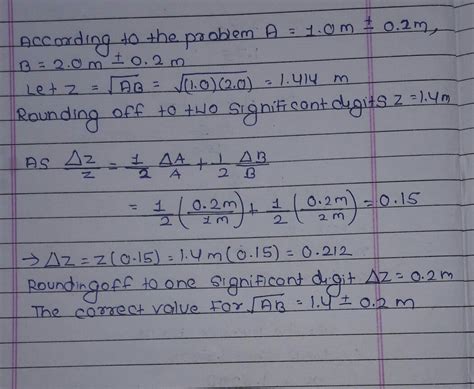 According to the problem A = 1.0m ± 0.2m,
B = 2.0m ± 0.2 m
Let z = √AB = √(1.0)(2.0) = 1.414 m
Rounding off to two significant digits z = 1.4m
As Δz/z = 1/2 ΔA/A + 1/2 ΔB/B
= 1/2 (0.2m/1m) + 1/2 (0.2m/2m) = 0.15
→ Δz = z(0.15) = 1.4m(0.15) = 0.212
Rounding off to one significant digit Δz = 0.2m
The correct value for √AB = 1.4 ± 0.2 m